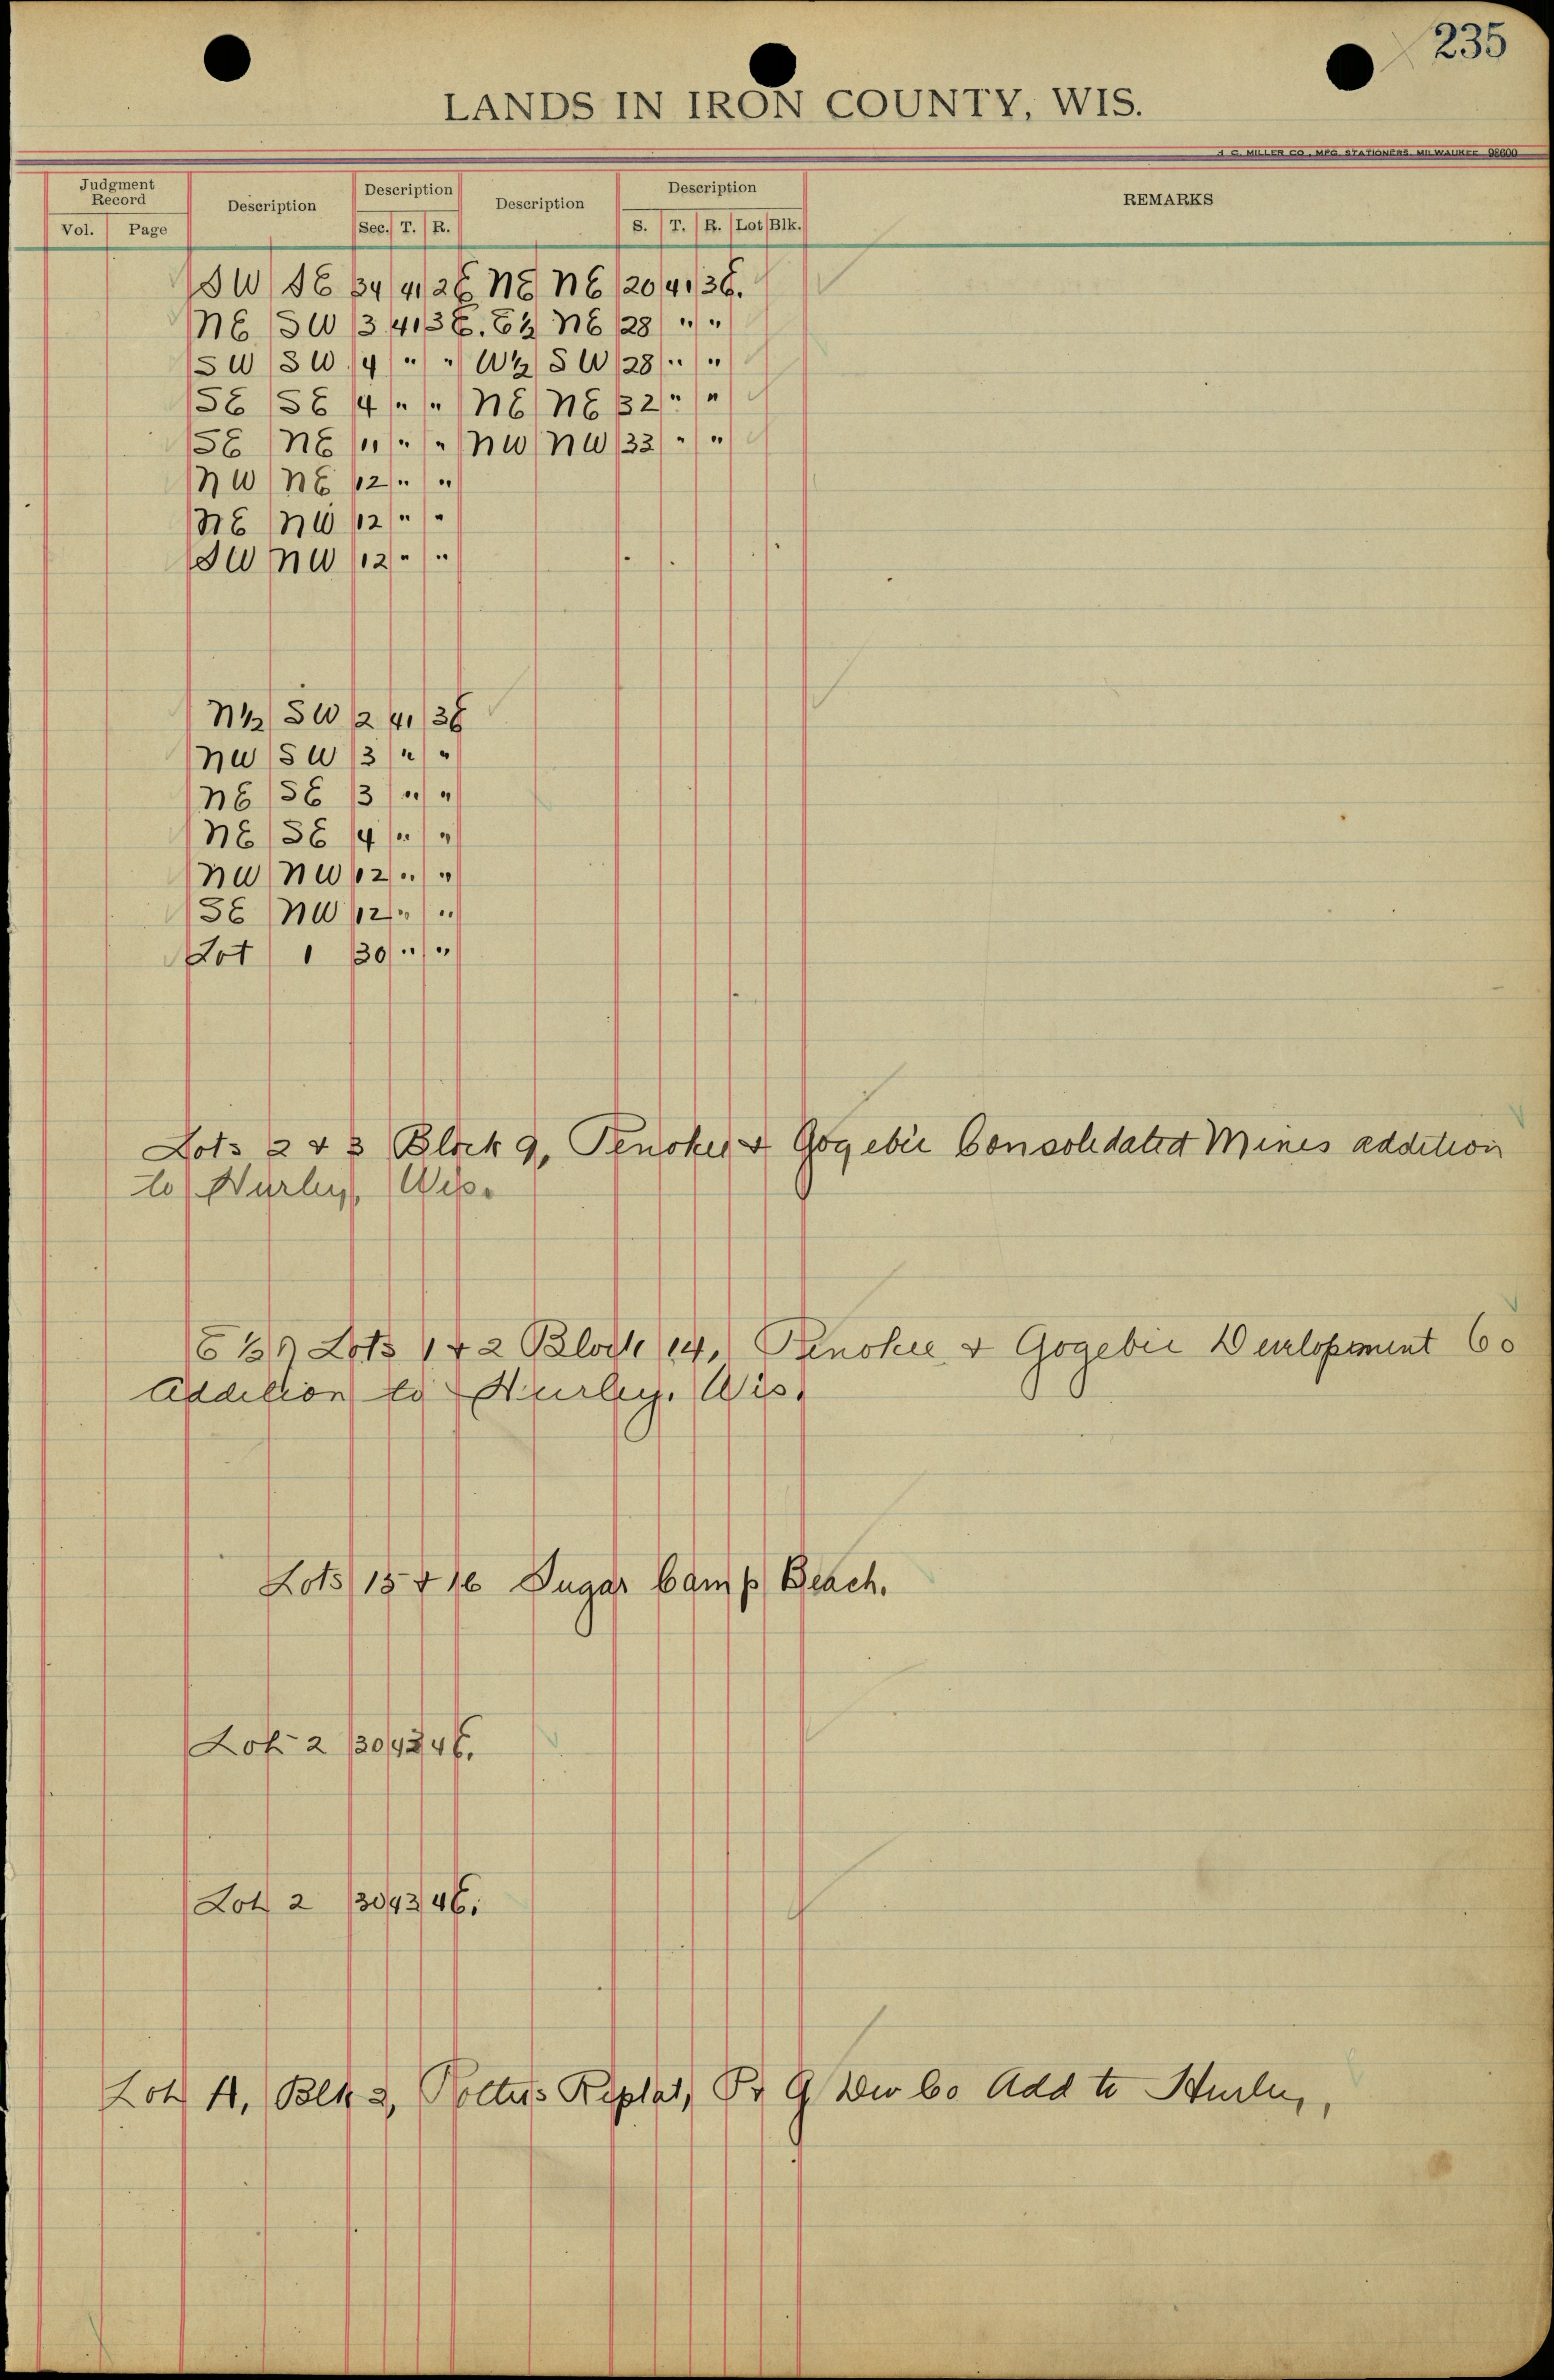 235
LANDS IN IRON COUNTY, WIS.
H. C. MILLER CO., MFG. STATIONERS, MILWAUKEE 98600
Judgment Record Description Description Description Description REMARKS
Vol. Page Sec. T. R. S. T. R. Lot Blk.
SW SE 34 41 2E NE NE 20 41 3E.
NE SW 3 41 3E. E½ NE 28 " "
SW SW 4 " " W½ SW 28 " "
SE SE 4 " " NE NE 32 " "
SE NE 11 " " NW NW 33 " "
NW NE 12 " "
NE NW 12 " "
SW NW 12 " "
N½ SW 2 41 3E
NW SW 3 " "
NE SE 3 " "
NE SE 4 " "
NW NW 12 " "
SE NW 12 " "
Lot 1 30 " "
Lots 2 & 3 Block 9, Penokee & Gogebic Consolidated Mines addition
to Hurley, Wis.
E ½ Lots 1 & 2 Block 14, Penokee & Gogebic Development Co
Addition to Hurley, Wis.
Lots 15 & 16 Sugar Camp Beach.
Lot 2 30 43 4E.
Lot 2 30 43 4E.
Lot A, Blk 2, Replat, P & G Dev Co Add to Hurley,